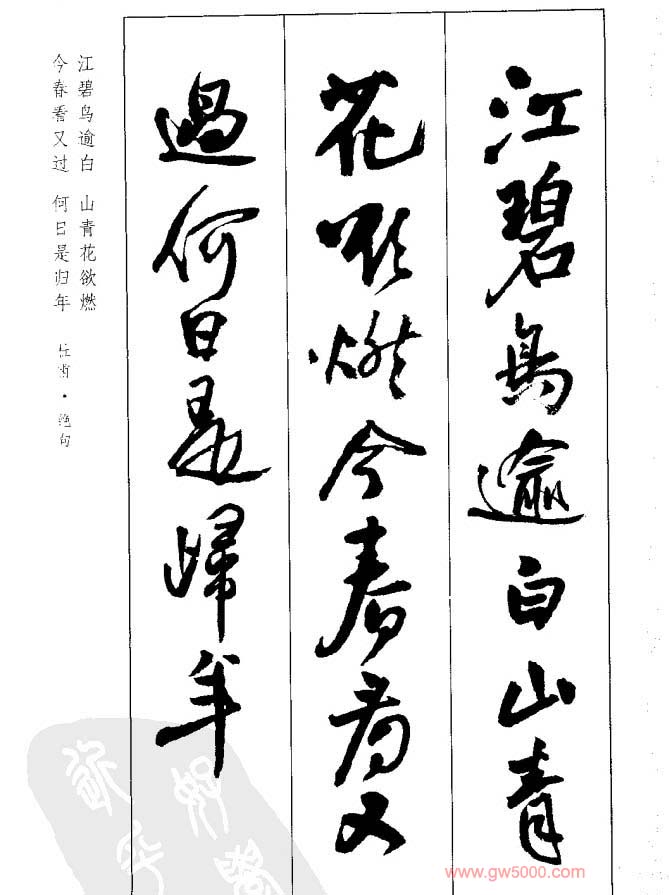 江碧鸟逾白山青
花欲燃今春看又
過何日是歸年
江碧鸟逾白 山青花欲燃
今春看又过 何日是归年
杜甫・绝句
www.gw5000.com